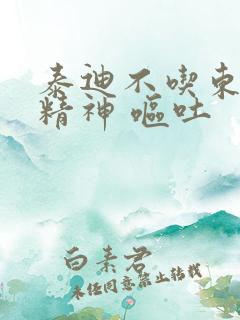 泰迪不喫東
精神 嘔吐
白素君
未经同意禁止转载